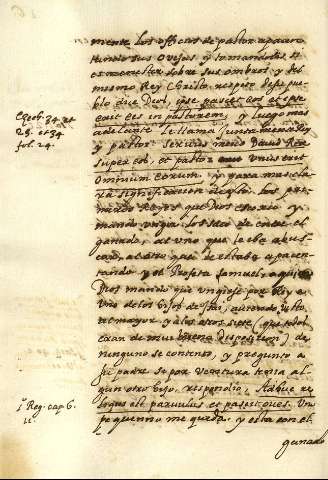 mente los officios de pastor apacen
tando sus ovejas y tomandolas si
es menester sobre sus ombros y del
mismo Rey Christo
blo dice Dios ipse pascet eos et ipse
erit eis in pastorem, y luego mas
adelante le llama juntamente Rey
y pastor servus meus David Rex
super eos, et pastor unus erit
omnium eorum y para mas cla
ra significacion desto los pri
meros Reyes que Dios y
mando ungir los saco de entre el
ganado, al uno que le iba a bus
car, al otro que estaba apacen
tando y el Profeta Samuel, a quien
Dios mando que ungiese por Rey a
uno de los hijos de Isai, aviendo visto
al mayor y a los otros siete (que todos
eran de muy buena disposicion) de
ninguno se contento, y pregunto a
su padre se por ventura tenia al
gun otro hijo. respondio, Adhuc re
liquus est parvulus et pascit oves. Un
pequenno me queda, y esta con el
ganado
Ezech. 34 et
28. et 34
fol. 24.
1º Reg. cap 6.
11.